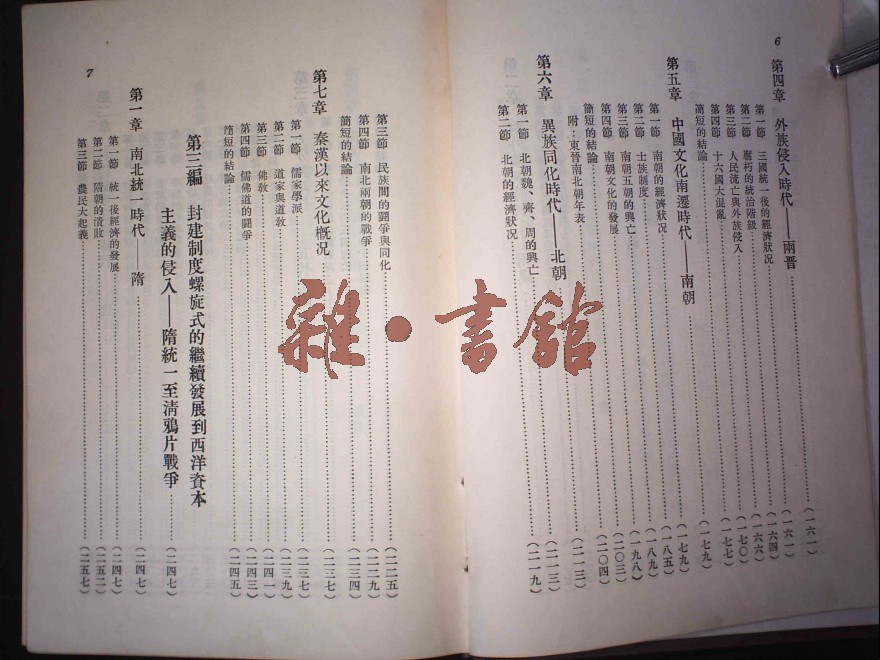 6
第四章　外族侵入時代——兩晉……(一六一)
第一節　三國統一後的經濟狀況……(一六一)
第二節　腐朽的統治階級……(一六四)
第三節　人民流亡與外族侵入……(一六六)
第四節　十六國大混亂……(一七〇)
簡短的結論……(一七七)
第五章　中國文化南遷時代——南朝……(一七九)
第一節　南朝的經濟狀況……(一七九)
第二節　士族制度……(一八五)
第三節　南朝五朝的興亡……(一八九)
第四節　南朝文化的發展……(一九八)
簡短的結論……(二〇三)
附：東晉南北朝年表……(二〇四)
第六章　異族同化時代——北朝……(二一三)
第一節　北朝魏、齊、周的興亡……(二一三)
第二節　北朝的經濟狀況……(二一九)
7
第三節　民族間的鬪爭與同化……(二二五)
第四節　南北兩朝的戰爭……(二二九)
簡短的結論……(二三四)
第七章　秦漢以來文化概況……(二三七)
第一節　儒家學派……(二三七)
第二節　道家與道教……(二三九)
第三節　佛教……(二四一)
第四節　儒佛道的鬪爭……(二四三)
簡短的結論……(二四五)
第三編　封建制度螺旋式的繼續發展到西洋資本
主義的侵入——隋統一至清鴉片戰爭……(二四七)
第一章　南北統一時代——隋……(二四七)
第一節　統一後經濟的發展……(二四七)
第二節　隋朝的潰敗……(二五二)
第三節　農民大起義……(二五七)
雜·書館